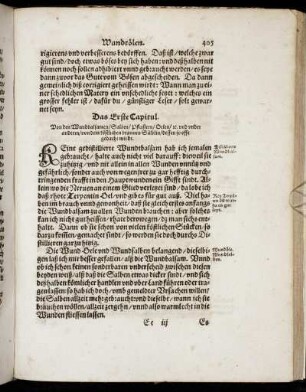 Wundtölen. 405
rigierens und verbesserens bedörffen. Daß ist/ welche zwar
gut sind/ doch etwas böses bey sich haben: und deßhalben mit
können noch sollen adhibiert unnd gebraucht werden/ es seye
dann zuvor das Gute vom Bösen abgescheiden. Da dann
gemeinlich diß corrigiert geheissen wirdt: Wann man zu ei
ner schedlichen Matery ein unschedliche setzt: welches ein
grosser fehler ist/ dafür du/ günstiger Leser/ solt gewar
net seyn.
Das Erste Capitul.
Von den Wundbalsamen/ Salben/ Pflastern/ Oelen/ und
anderen/ werden
gedacht wirdt.
KEine gedistillierte Wundtbalsam hab ich jemalen
gebraucht/ halte auch nicht viel darauff: dieweil sie
zuhitzig/ und nit allein in allen Wunden unnütz und
gefährlich/ sonder auch von wegen jrer zu gar hefftig durch-
tringenden krafft in den Haupwunden im Gifft sind. Al-
lein wo die Nerven an einem Glied entblößt/ da lobe und
rhate ich das Terpentin-Oel und gib es für gut auß. Viel ha-
ben im brauch und gewonheit/ daß sie gleich erst anfangs
die Wundbalsam zu allen Wunden brauchen: aber solches
kan ich nicht gut heissen/ rhate derowegen/ daß man solches
nicht thüge. Ob sie schon von vielen köstlichen Stücken/ so
darzu tauglich sind/ gemacht/ so werden sie doch durchs Di-
stillieren zu hitzig.
Die Wund-Oele und Wundsalben belangend/ dieselbi-
gen laß ich mir besser gefallen/ als die Wundbalsam. Wann
ob ich schon keinen sonderbaren underscheid zwischen diesen
beyden weiß/ als daß die Salben etwas dicker sind/ und sich
deßhalben kömlicher handlen und uber Land führen oder
tragen lassen: so hab ich doch/ umb gemeldter Ursachen willen/
die Salben allezeit mehr gebraucht/ und dieselbe/ wann ich sie
brauchen wöllen/ allezeit zergehen/ unnd also warmlecht in
die Wunden fliessen lassen.
Ee iij Es